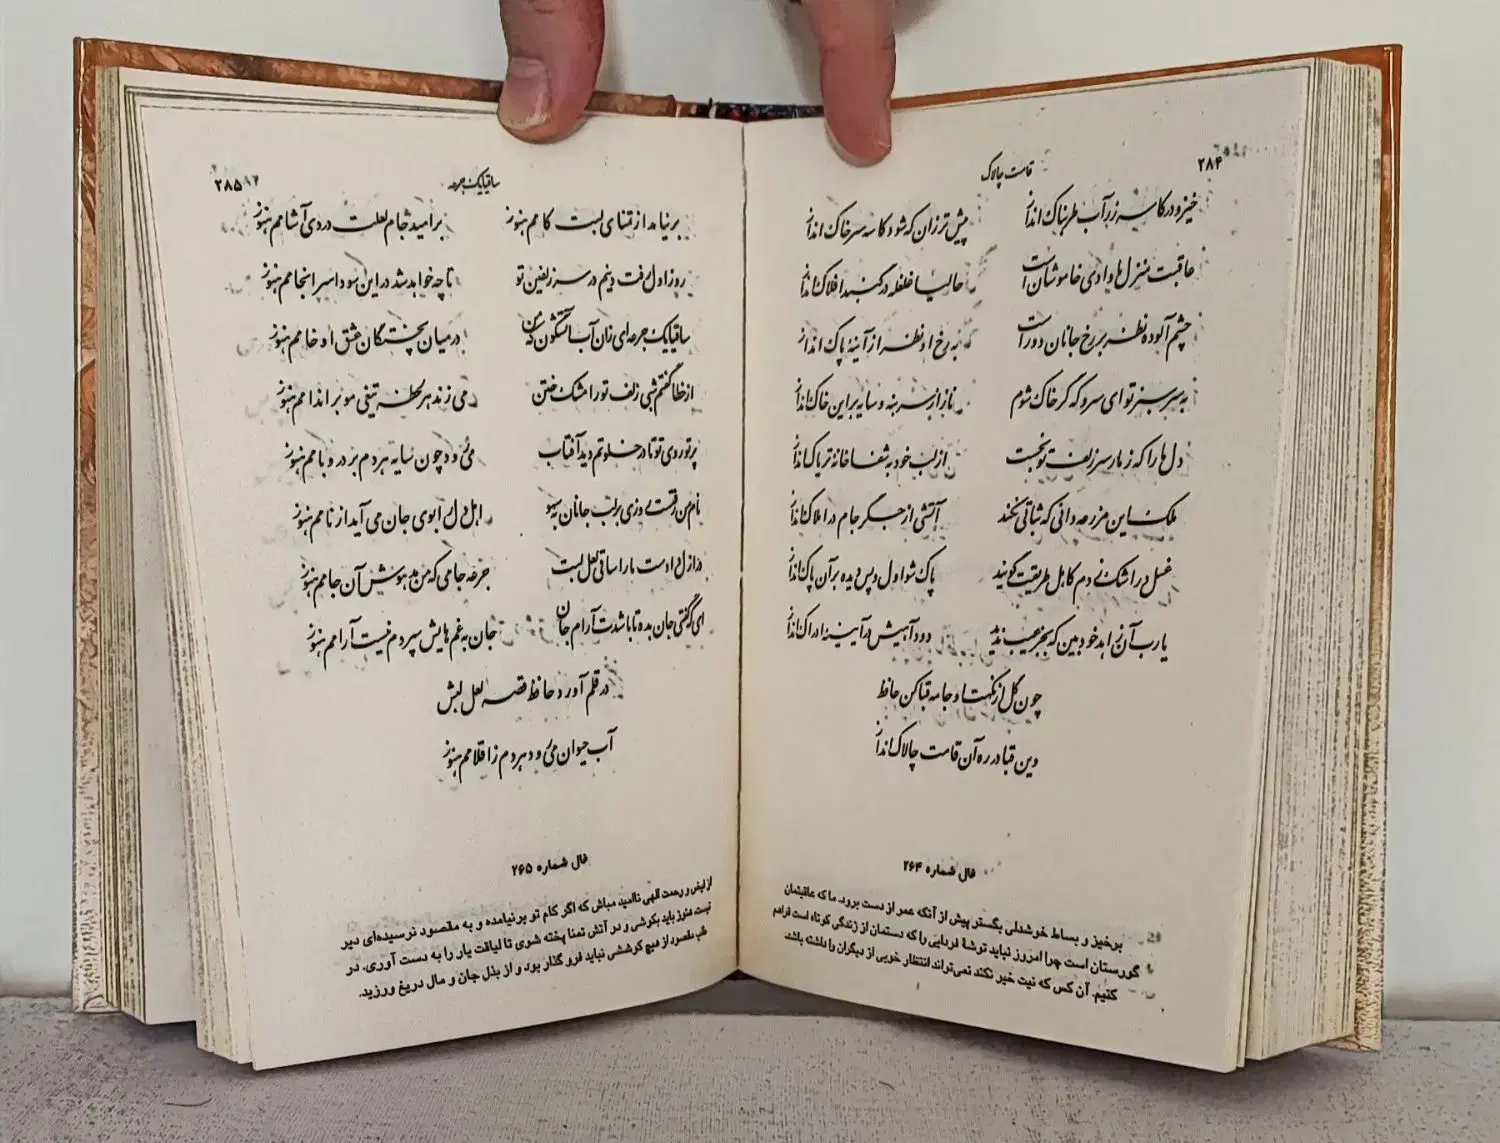 ۲۸۴
قامت چالاک
خیز و در کاسه زر آب طربناک انداز
پیش‌تر زان که شود کاسه سر خاک انداز
عاقبت منزل ما وادی خاموشان است
حالیا غلغله در گنبد افلاک انداز
چشم آلوده نظر بر رخ جانان دور است
به رخ او نظر از آینهٔ پاک انداز
به سر سبز تو ای سرو که گر خاک شوم
ناز از سر بنه و سایه بر این خاک انداز
دل ما را که ز مار سر زلف تو بخست
از لب خود به شفاخانه تریاک انداز
ملک این مزرعه دانی که ثباتی نکند
آتشی از جگر جام در املاک انداز
غسل در اشک زدم کاهل طریقت گویند
پاک شو اول و پس دیده بر آن پاک انداز
یارب آن زاهد خودبین که بجز عیب ندید
دود آهیش در آیینه ادراک انداز
چون گل از نکهت او جامه قبا کن حافظ
وین قبا در ره آن قامت چالاک انداز
فال شماره ۲۶۴
برخیز و بساط خوشدلی بگستر پیش از آنکه عمر از دست برود. ما که عاقبتمان
گورستان است چرا امروز نباید توشهٔ فردایی را که دستمان از زندگی کوتاه است فراهم
کنیم. آن کس که نیت خیر نکند نمی‌تواند انتظار خوبی از دیگران را داشته باشد.
۲۸۵
ساقیا یک جرعه
برنیامد از تمنای لبت کامم هنوز
بر امید جام لعلت دردی آشامم هنوز
روز اول رفت دینم در سر زلفین تو
تا چه خواهد شد در این سودا سرانجامم هنوز
ساقیا یک جرعه‌ای زان آب آتشگون که من
در میان پختگان عشق او خامم هنوز
از خطا گفتم شبی زلف تو را مشک ختن
می زند هر لحظه تیغی مو بر اندامم هنوز
پرتو روی تو تا در خلوتم دید آفتاب
می‌رود چون سایه هر دم بر در و بامم هنوز
نام من رفتست روزی بر لب جانان به سهو
اهل دل را بوی جان می آید از نامم هنوز
در ازل دادست ما را ساقی لعل لبت
جرعه جامی که من مدهوش آن جامم هنوز
ای که گفتی جان بده تا باشدت آرام جان
جان به غم‌هایش سپردم نیست آرامم هنوز
در قلم آورد حافظ قصه لعل لبش
آب حیوان می‌رود هر دم ز اقلامم هنوز
فال شماره ۲۶۵
از فیض و رحمت الهی ناامید مباش که اگر کام تو برنیامده و به مقصود نرسیده‌ای دیر
نیست هنوز باید بکوشی و در آتش تمنا پخته شوی تا لیاقت یار را به دست آوری. در
طلب مقصود از هیچ کوششی نباید فرو گذار بود و از بذل جان و مال دریغ ورزید.